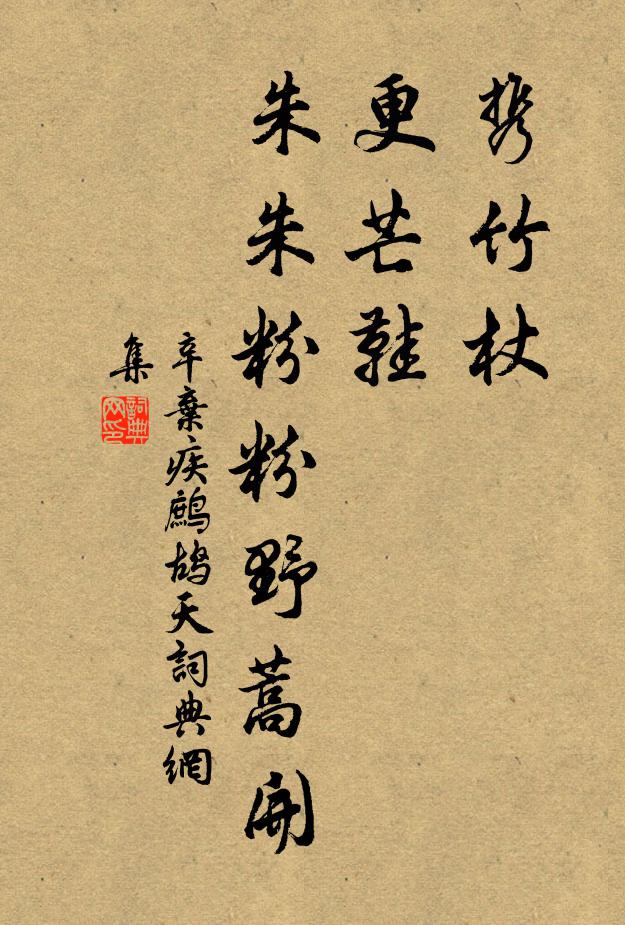 携竹杖
更芒鞋
朱朱粉粉野蒿開
辛棄疾鷓鴣天詞典網
集
詞典網印